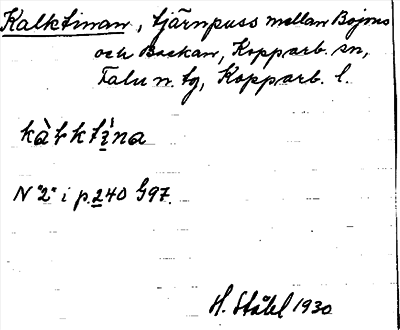 Kalktinan, tjärnpuss mellan Bojons
och Backan, Kopparb. sn,
Falu n. tg, Kopparb. l.
kàɫktì̱na
N "2" i p. 240 G97.
H. Ståhl 1930